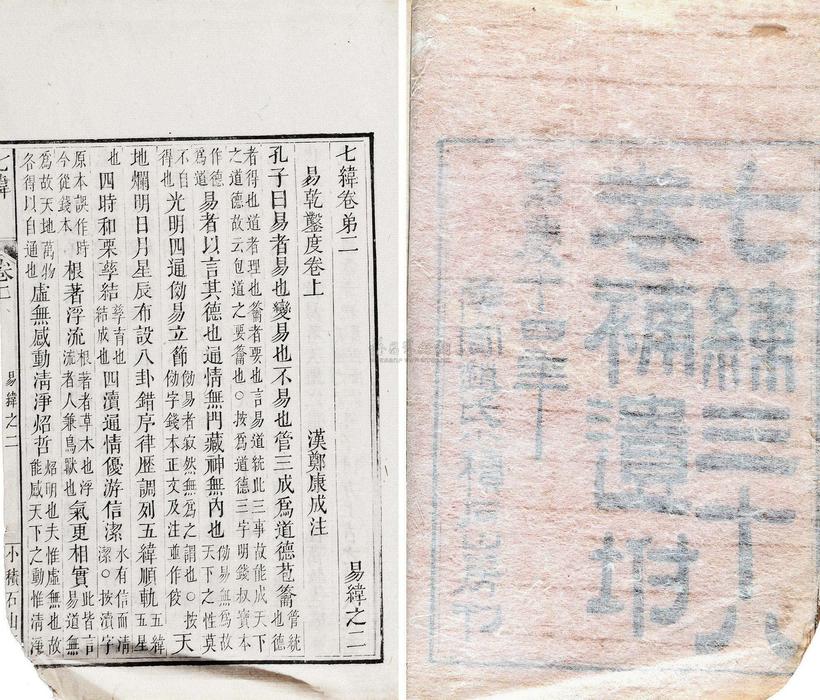 七緯三十八
卷補遺坿
嘉慶十四年
七緯卷弟二 易緯之二
易乾鑿度卷上 漢鄭康成注
孔子曰易者易也變易也不易也管三成爲道德苞籥管統也德
者得也道者理也籥者要也言易道統此三事故能成天下之道德故云包道之要籥也○按爲道德三字明錢叔寶本
作德爲道易者以言其德也通情無門藏神無內也俲易無爲故天下之性莫
不自得也光明四通俲易立節俲易者寂然無爲之謂也○按俲字錢本正文及注並作佼天
地爛明日月星辰布設八卦錯序律歷調列五緯順軌五緯五星
也四時和栗孳結孳育也結成也四瀆通情優游信潔水有信而清潔○按瀆字
原本誤作時今從錢本根著浮流根著者草木也浮流者人兼鳥獸也氣更相實此皆言易道無
爲故天地萬物各得以自通也虛無感動清淨炤哲炤明也夫惟虛無也故能感天下之動惟清淨
七緯 卷二 易緯之二 小積石山